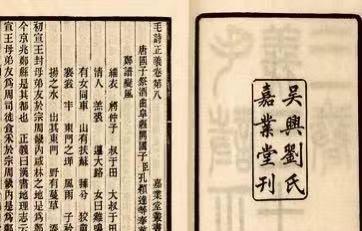 吳興劉氏
嘉業堂刊
毛詩正義卷第八 嘉業堂叢書
唐國子祭酒曲阜縣開國子臣孔穎達等奉
鄭譜
緇衣 將仲子 叔于田 大叔于田
清人 羔裘 遵大路 女曰雞鳴
有女同車 山有扶蘇 蘀兮 狡童
褰裳 丰 東門之墠 風雨 子衿
揚之水 出其東門 野有蔓草
初宣王封母弟友於宗周畿內咸林之地是為鄭
今京兆鄭縣是其都也 正義曰漢書地理志云
宣王母弟友為周司徒食采於宗周畿內是為鄭